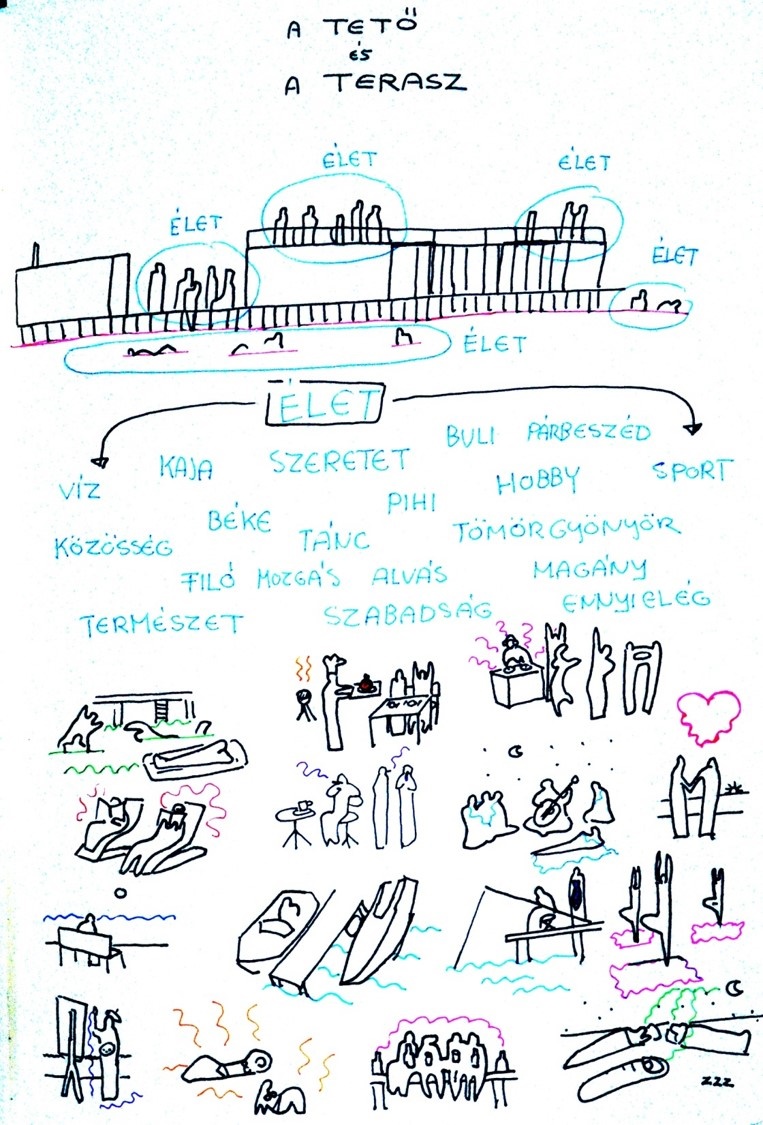 A TETŐ
ÉS
A TERASZ
ÉLET
ÉLET
ÉLET
ÉLET
ÉLET
ÉLET
BULI PÁRBESZÉD
KAJA SZERETET
VÍZ PIHI HOBBY SPORT
BÉKE
KÖZÖSSÉG TÁNC TÖMÖR GYÖNYÖR
FILÓ MOZGÁS ALVÁS MAGÁNY
TERMÉSZET SZABADSÁG ENNYIELÉG
zzz